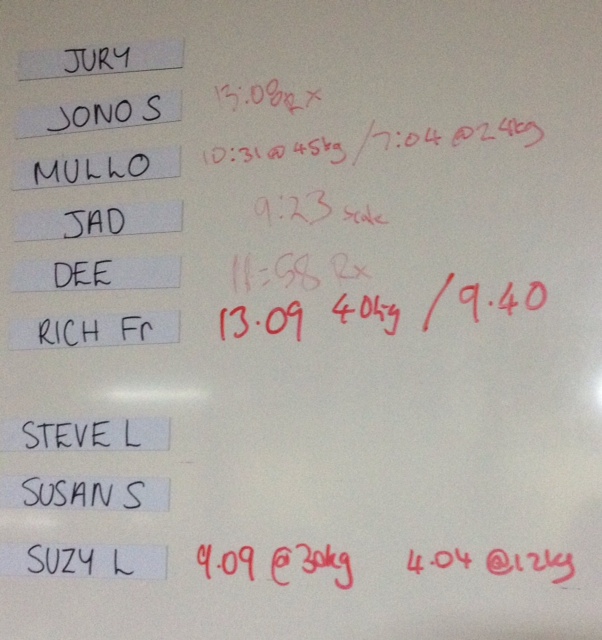 JURY
JONO S 13:08 Rx
MULLO 10:31 @ 45kg / 7:04 @ 24kg
JAD 9:23 scale
DEE 11:58 Rx
RICH Fr 13.09 40kg / 9.40
STEVE L
SUSAN S
SUZY L 9.09 @30kg 4.04 @12kg